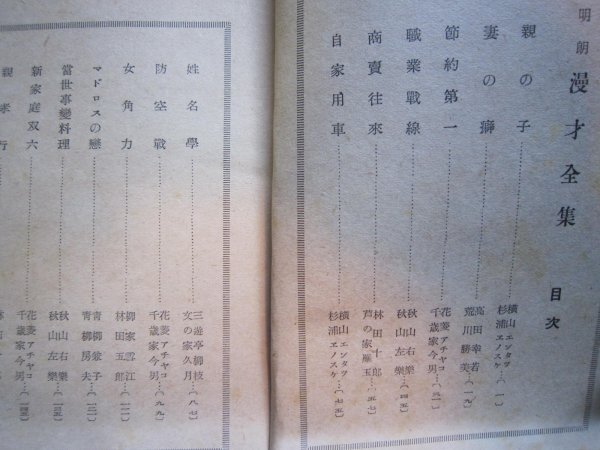 明朗漫才全集 目次
親の子……横山エンタツ 杉浦エノスケ…(一)
妻の癖……高田幸若 荒川勝美…(一九)
節約第一……花菱アチヤコ 千歳家今男…(三一)
職業戰線……秋山右樂 秋山左樂…(四五)
商賣往來……林田十郎 芦の家雁玉…(五七)
自家用車……横山エンタツ 杉浦エノスケ…(七五)
姓名學……三遊亭柳枝 文の家久月…(八七)
防空戰……花菱アチヤコ 千歳家今男…(九九)
女角力……御家雲江 林田五郎…(一一一)
マドロスの戀……青柳兼子 青柳房夫…(一二一)
當世事變料理……秋山右樂 秋山左樂…(一三五)
新家庭双六……花菱アチヤコ 千歳家今男…(一四五)
親孝行